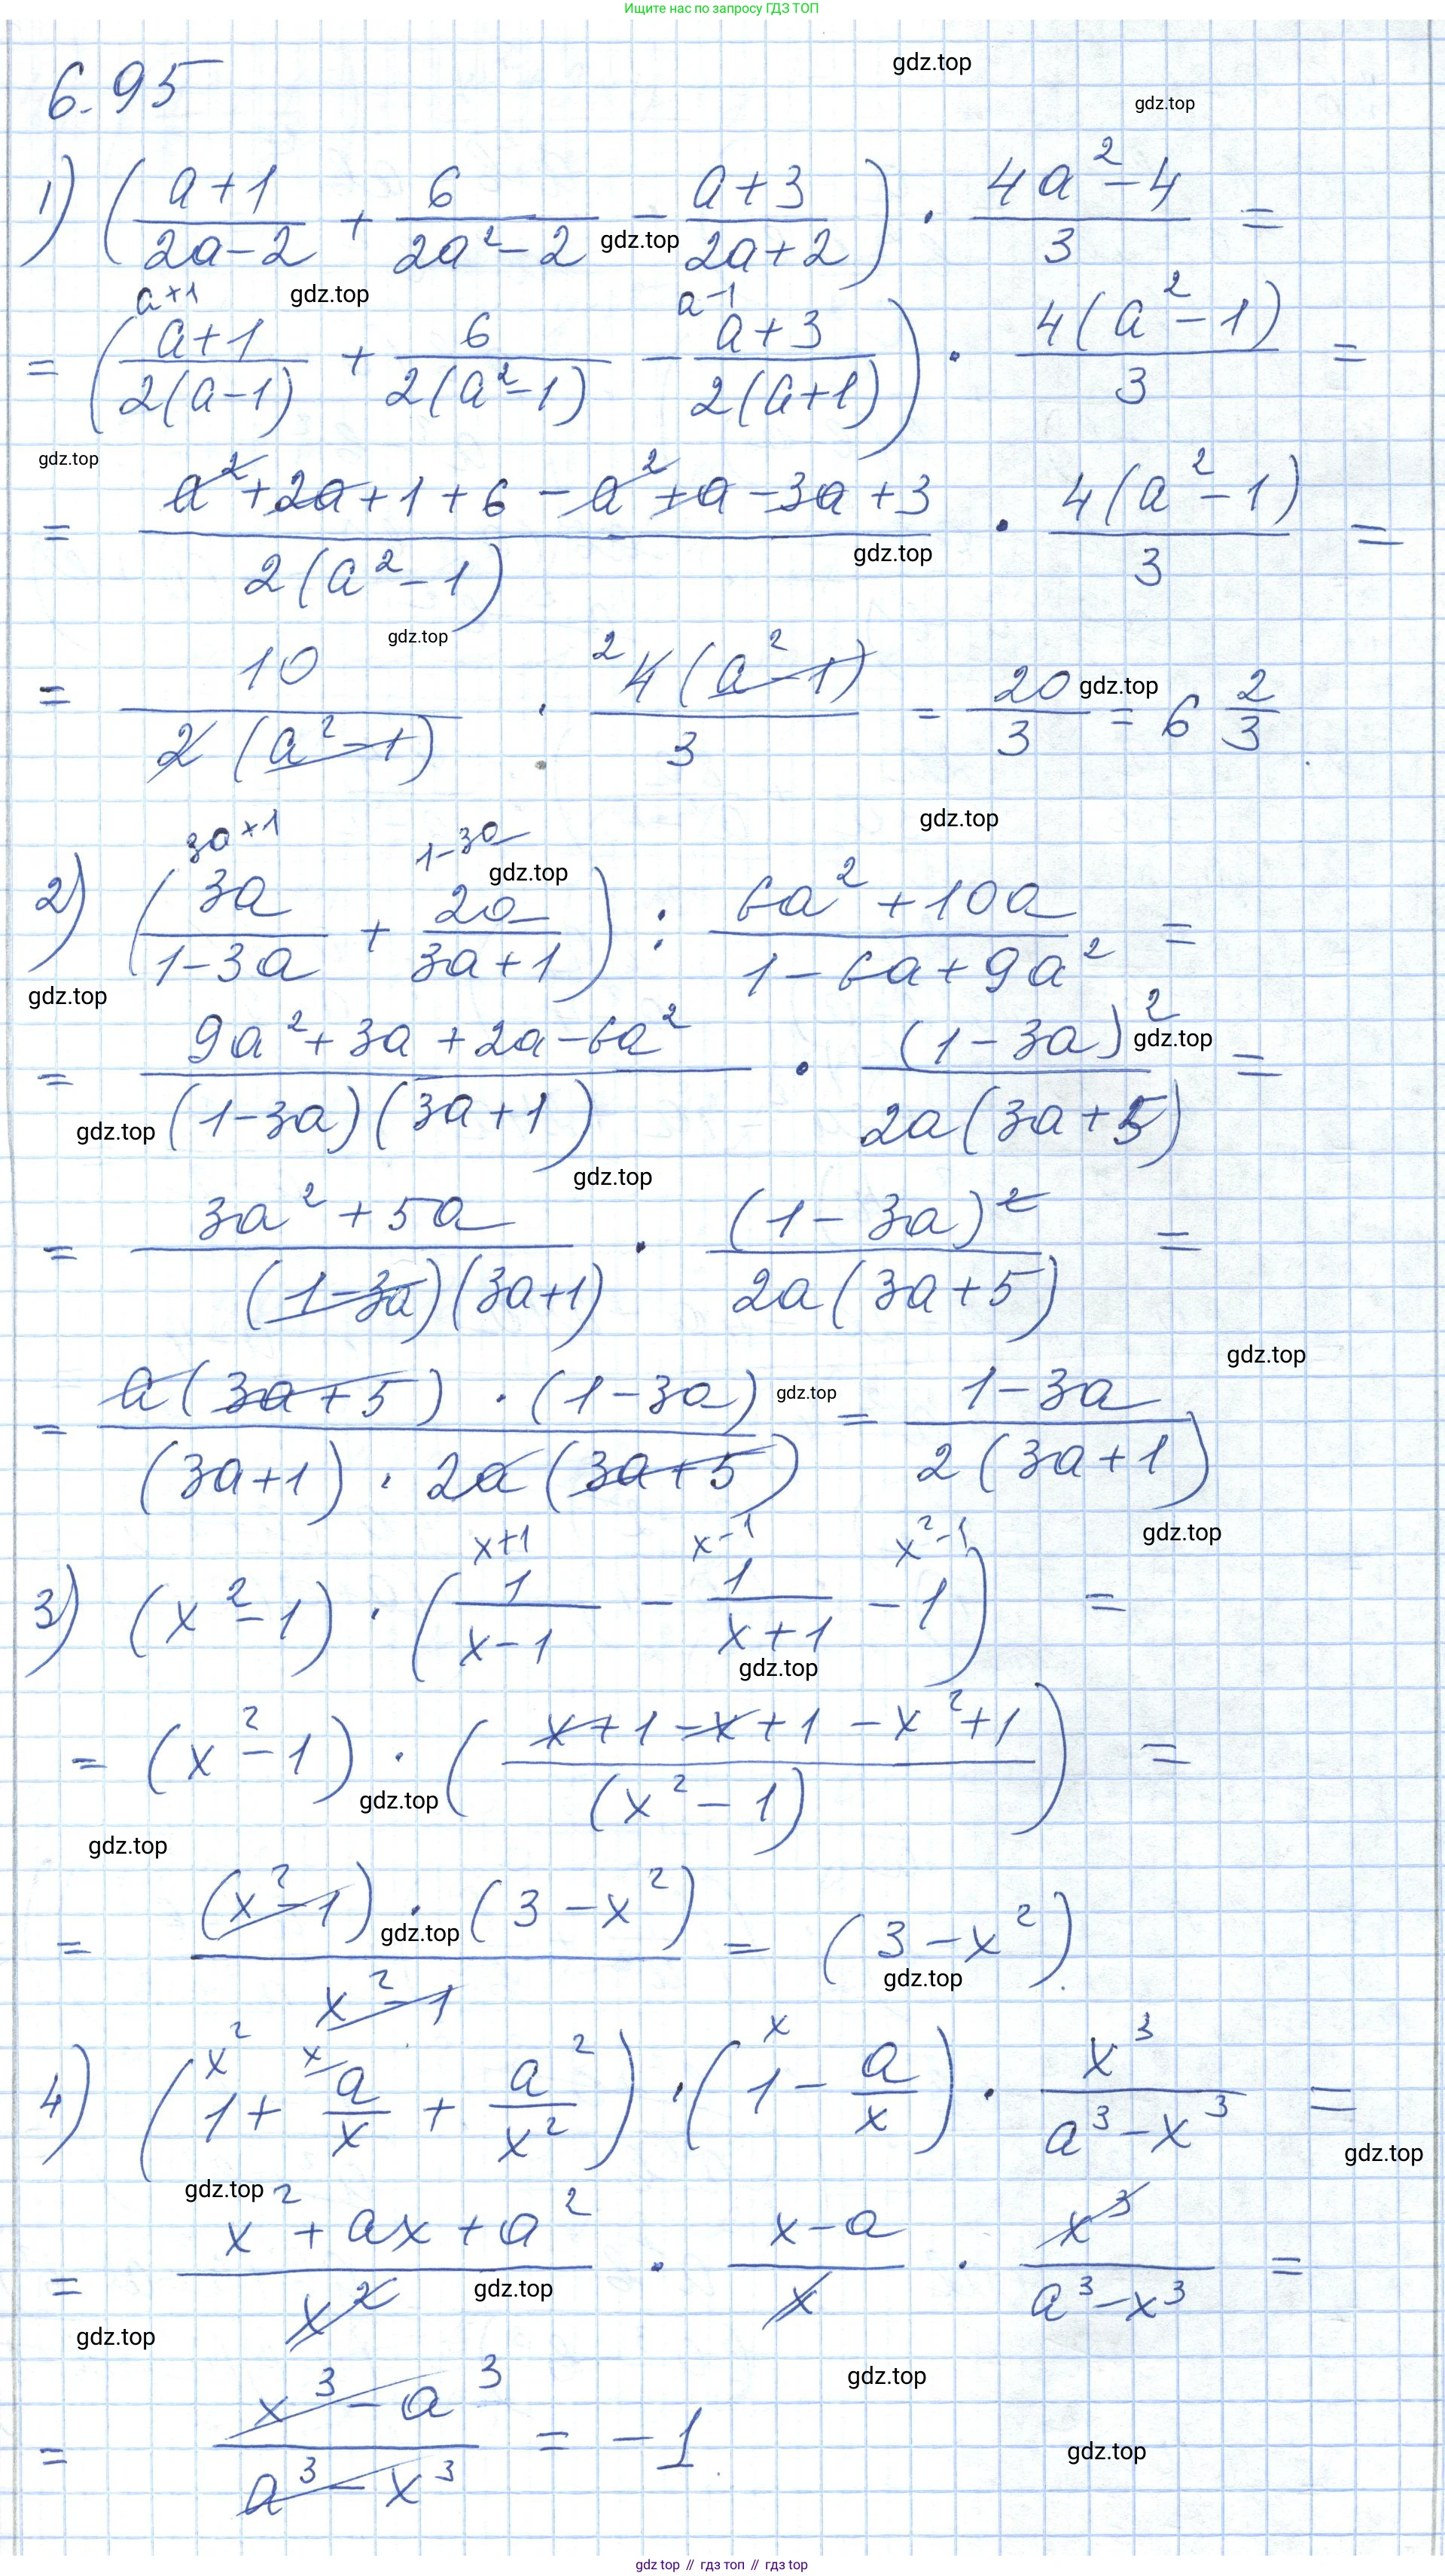 Ищите нас по запросу ГДЗ ТОП
gdz.top
6.95
gdz.top
1) ( (a+1)/(2a-2) + 6/(2a²-2) - (a+3)/(2a+2) ) · (4a²-4)/3 =
gdz.top
a+1 gdz.top a-1
= ( (a+1)/(2(a-1)) + 6/(2(a²-1)) - (a+3)/(2(a+1)) ) · 4(a²-1)/3 =
gdz.top
= (a²+2a+1+6-a²+a-3a+3)/(2(a²-1)) · 4(a²-1)/3 =
gdz.top
gdz.top
= 10/(2(a²-1)) · ²4(a²-1)/3 = 20/3 = 6 2/3
gdz.top
gdz.top
3a+1 1-3a
gdz.top
2) ( 3a/(1-3a) + 2a/(3a+1) ) : (6a²+10a)/(1-6a+9a²) =
gdz.top
= (9a²+3a+2a-6a²)/((1-3a)(3a+1)) · (1-3a)²/(2a(3a+5)) =
gdz.top
gdz.top
gdz.top
= (3a²+5a)/((1-3a)(3a+1)) · (1-3a)²/(2a(3a+5)) =
gdz.top
= (a(3a+5)·(1-3a))/((3a+1)·2a(3a+5)) = (1-3a)/(2(3a+1))
gdz.top
gdz.top
x+1 x-1 x²-1
3) (x²-1) · ( 1/(x-1) - 1/(x+1) - 1 ) =
gdz.top
= (x²-1) · ( (x+1-x+1-x²+1)/(x²-1) ) =
gdz.top
gdz.top
= ((x²-1)·(3-x²))/(x²-1) = (3-x²).
gdz.top
gdz.top
x² x x
4) ( 1 + a/x + a²/x² ) · ( 1 - a/x ) · x³/(a³-x³) =
gdz.top
gdz.top
= (x²+ax+a²)/x² · (x-a)/x · x³/(a³-x³) =
gdz.top
gdz.top
gdz.top
= (x³-a³)/(a³-x³) = -1.
gdz.top
gdz.top // гдз топ // гдз top